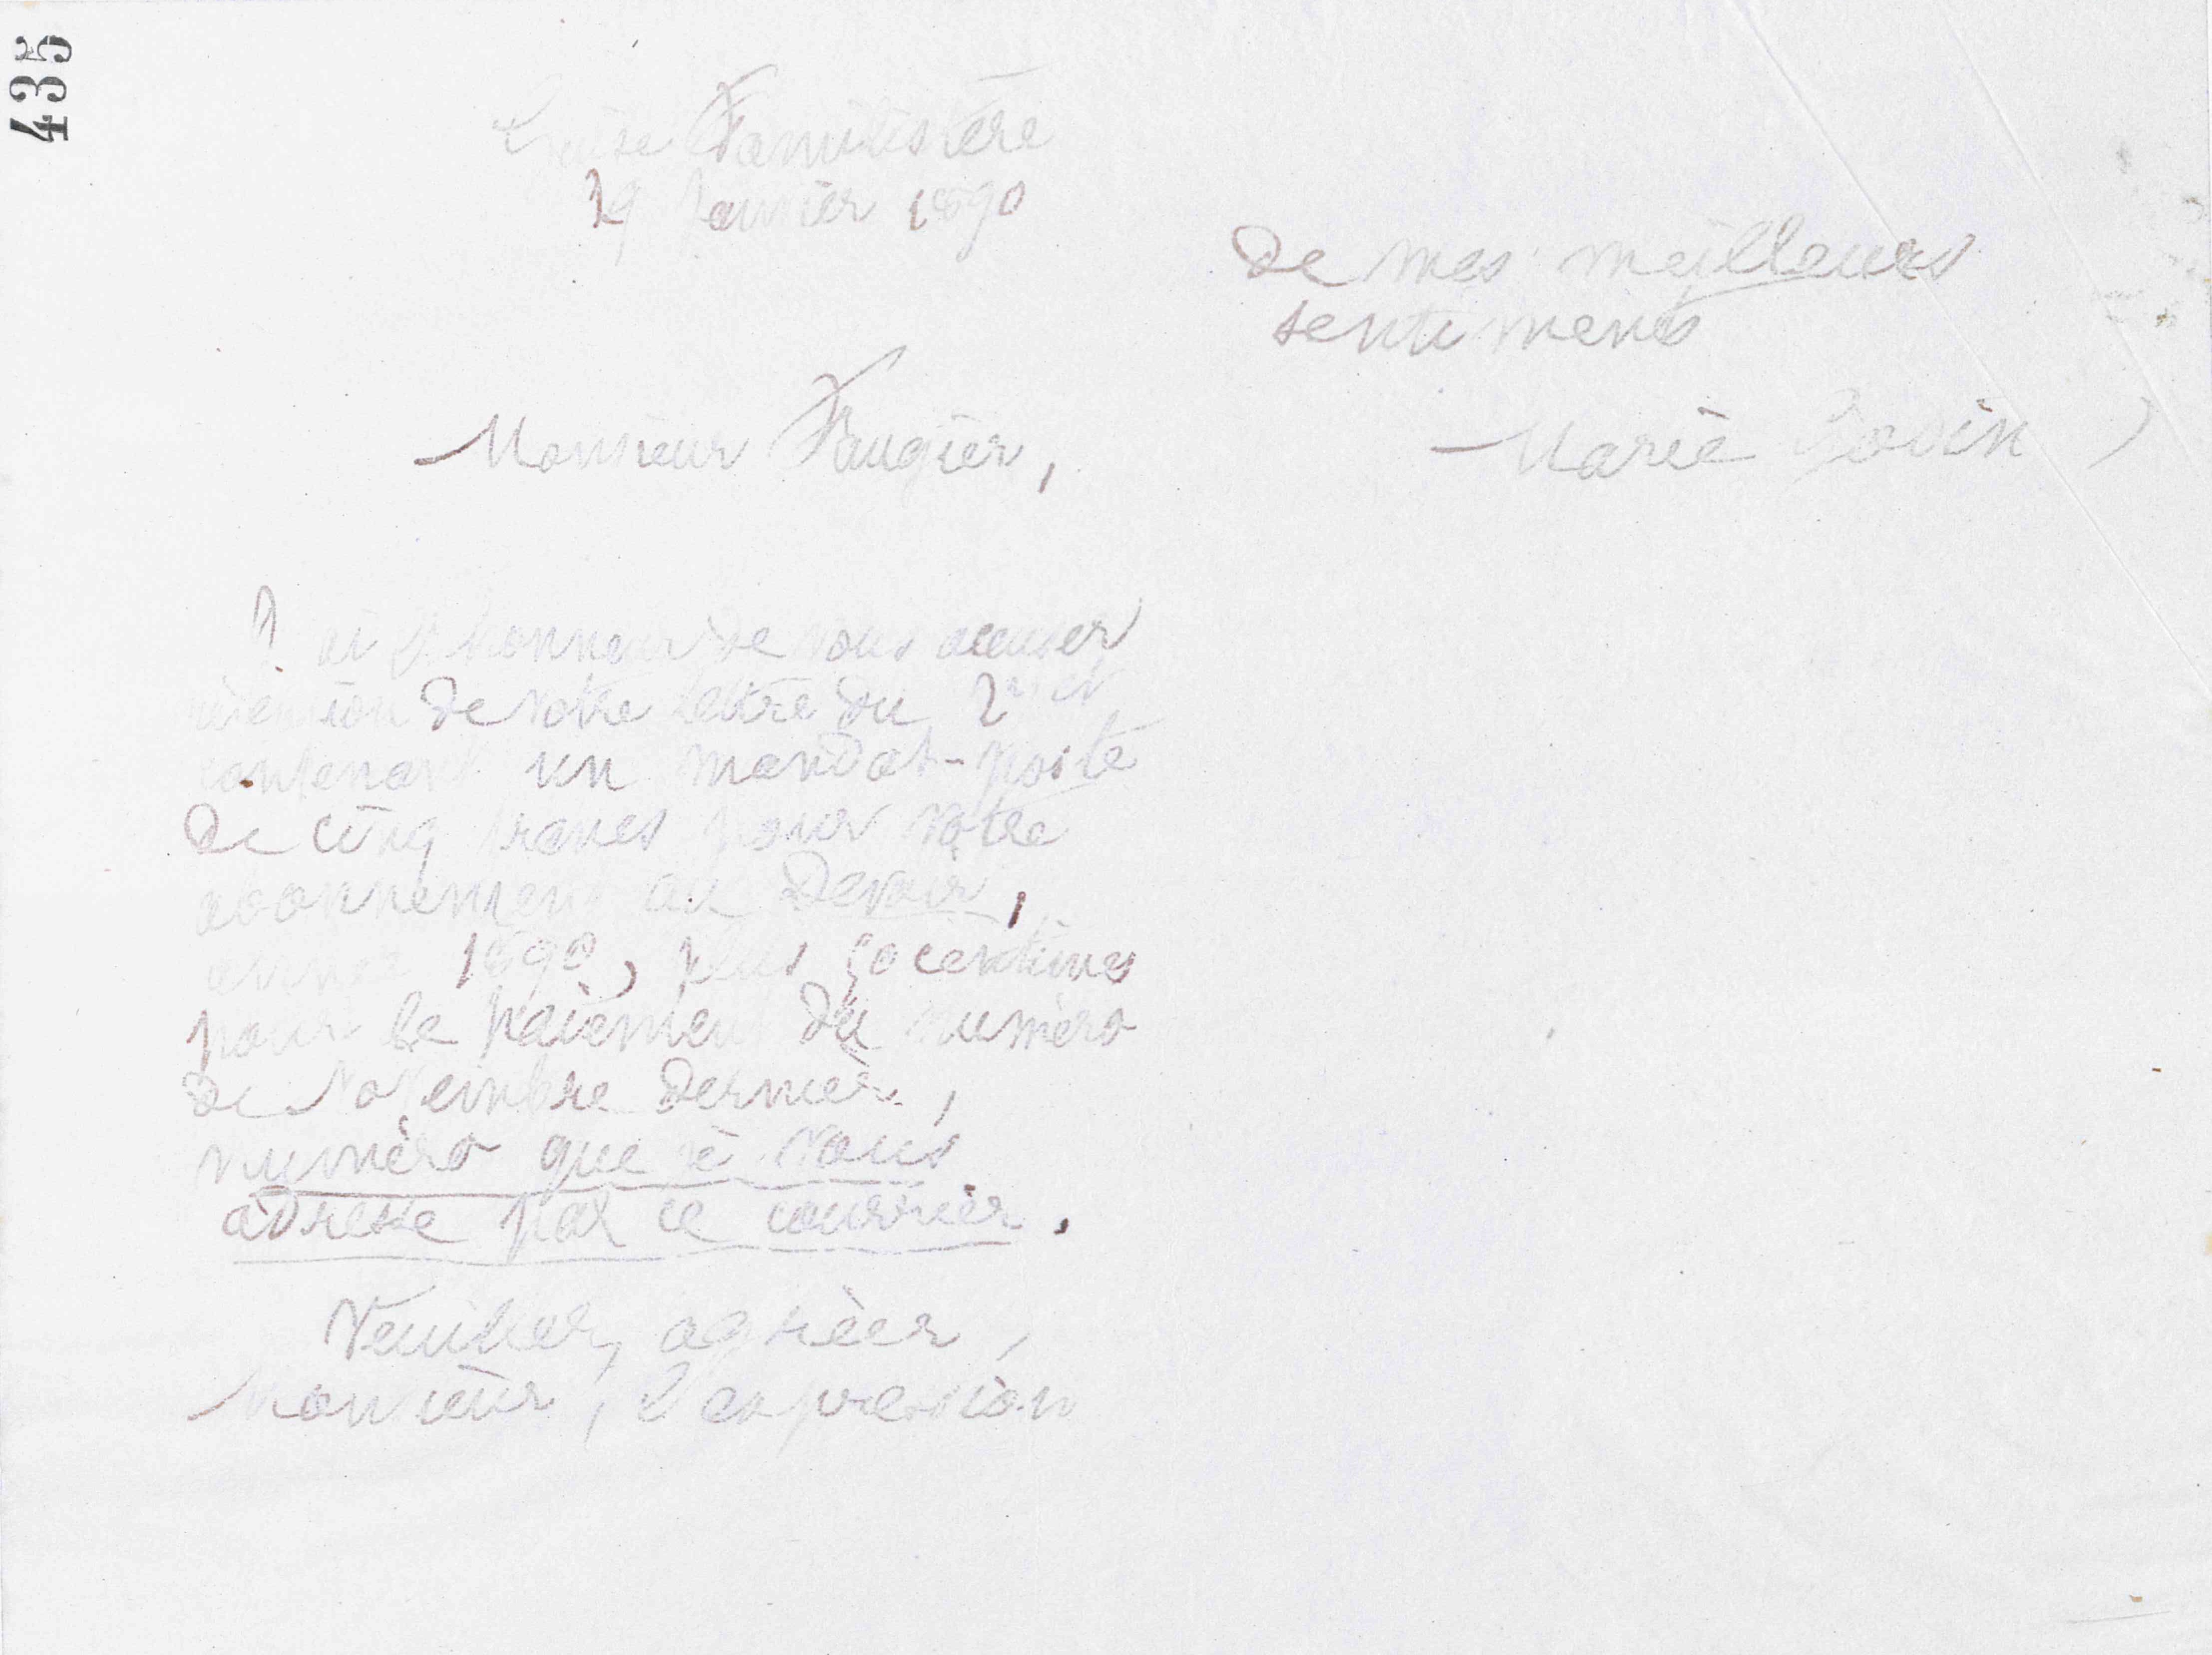 435
Guise Familistère
29 Janvier 1890
Monsieur Faugier,
J'ai l'honneur de vous accuser
réception de votre lettre du
contenant un mandat-poste
de cinq francs pour votre
abonnement au Devoir,
année 1890, plus 50 centimes
pour le paiement du numéro
de Novembre dernier,
numéro que je vous
adresse par ce courrier.
Veuillez, agréer,
Monsieur, l'expression
de mes meilleurs
sentiments
Marie Godin